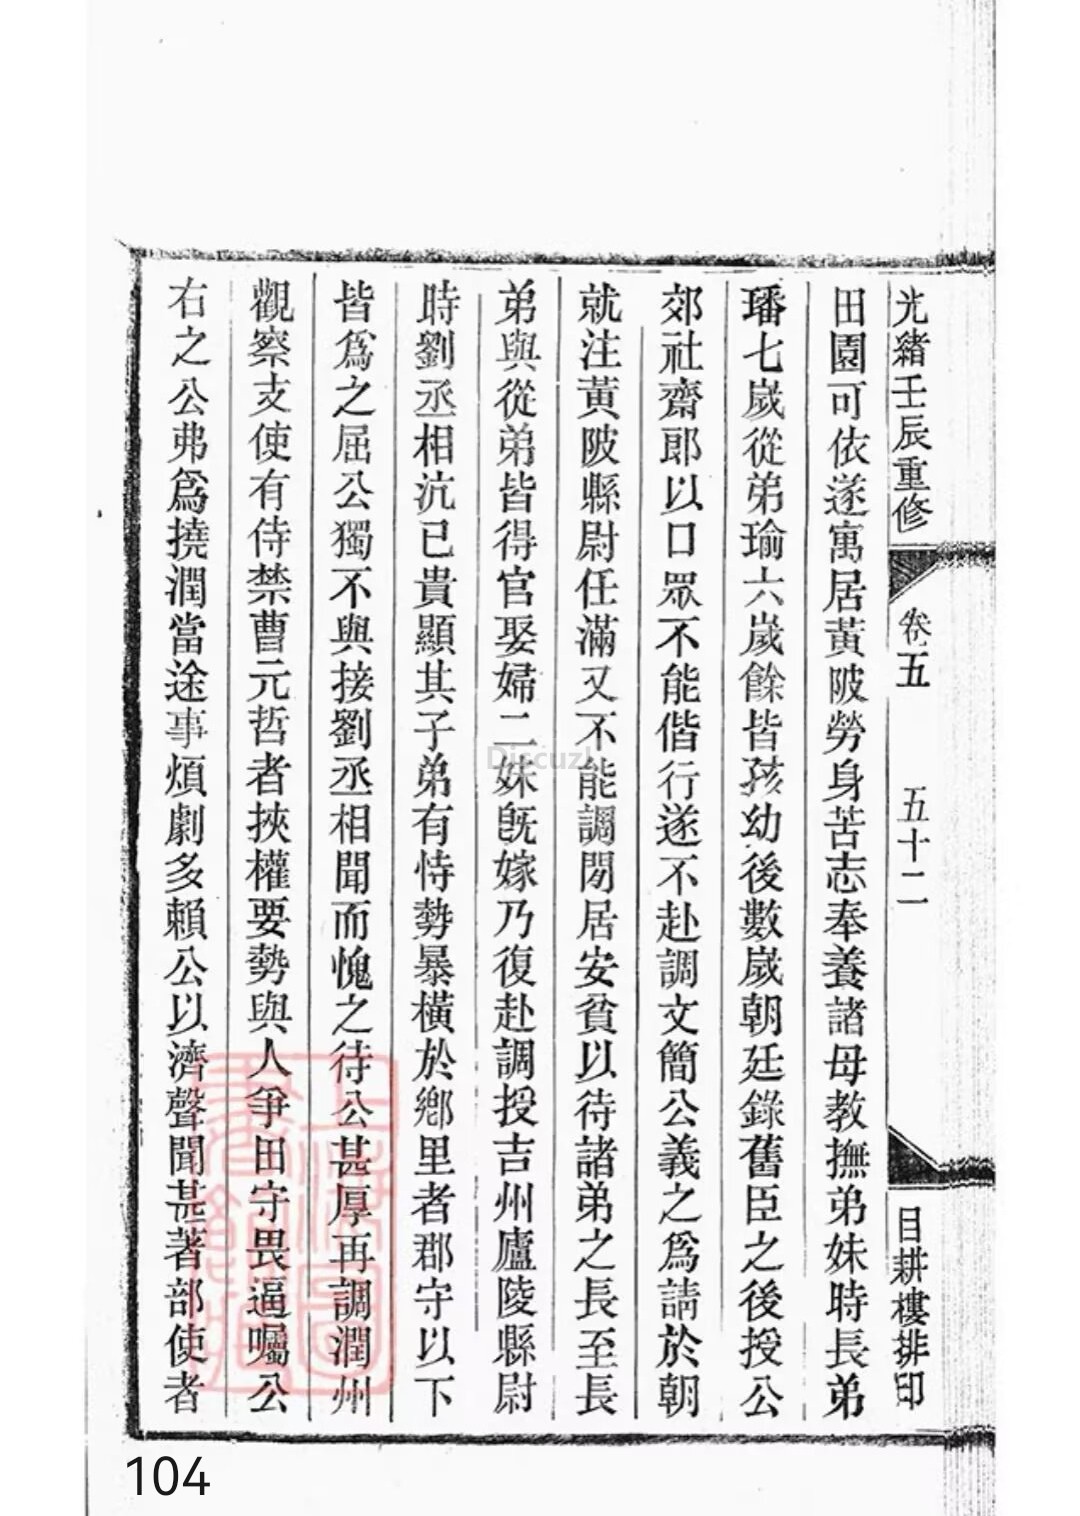 光緒壬辰重修
卷五
五十二
目耕樓排印
田園可依遂寓居黃陂勞身苦志奉養諸母教撫弟妹時長弟
璠七歲從弟瑜六歲餘皆孩幼後數歲朝廷錄舊臣之後授公
郊社齋郎以口眾不能偕行遂不赴調文簡公義之爲請於朝
就注黃陂縣尉任滿又不能調閒居安貧以待諸弟之長至長
弟與從弟皆得官娶婦二妹旣嫁乃復赴調授吉州廬陵縣尉
時劉丞相沆已貴顯其子弟有恃勢暴橫於鄉里者郡守以下
皆爲之屈公獨不與接劉丞相聞而愧之待公甚厚再調潤州
觀察支使有侍禁曹元哲者挾權要勢與人爭田守畏逼囑公
右之公弗爲撓潤當途事煩劇多賴公以濟聲聞甚著部使者
上海圖書館藏
Discuz!
104